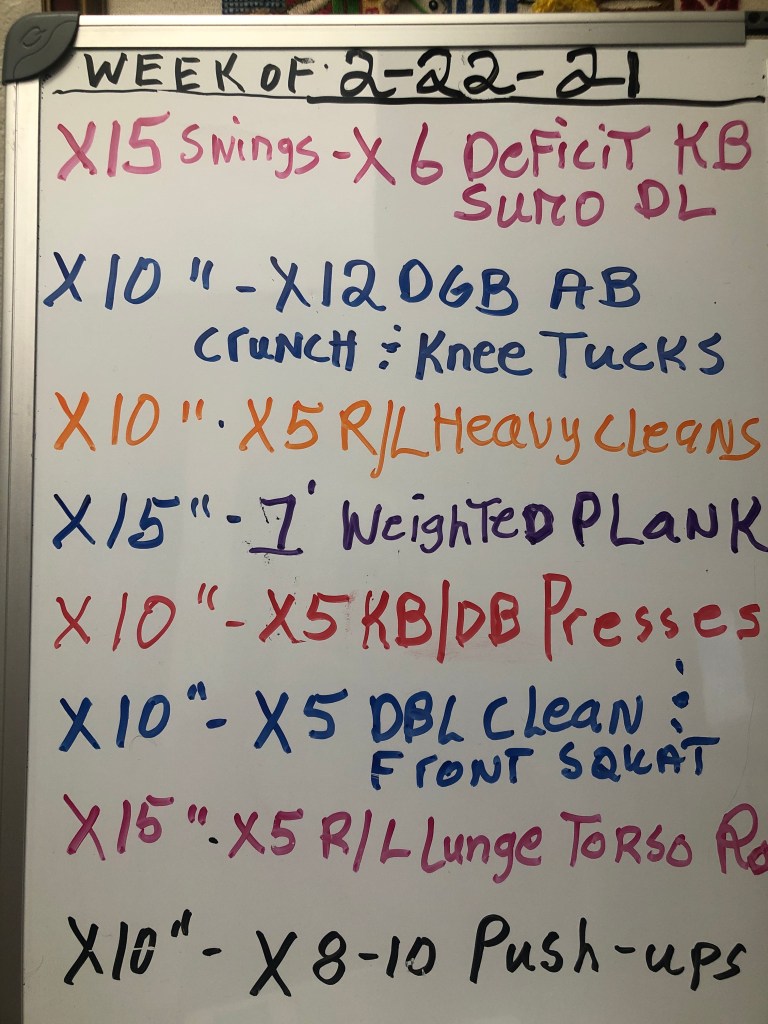 WEEK OF: 2-22-21
X15 Swings - X6 DeFiciT KB
SUMO DL
X10 " - X12 DGB AB
CrUNCH & Knee TUCKS
X10 " - X5 R/L Heavy Cleans
X15 " - 1' WeighTeD PLaNK
X10 " - X5 KB/DB Presses
X10 " - X5 DBL CLeAN &
FrONT SQUAT
X15 " - X5 R/L Lunge TORSO Ro
X10 " - X 8-10 Push-ups